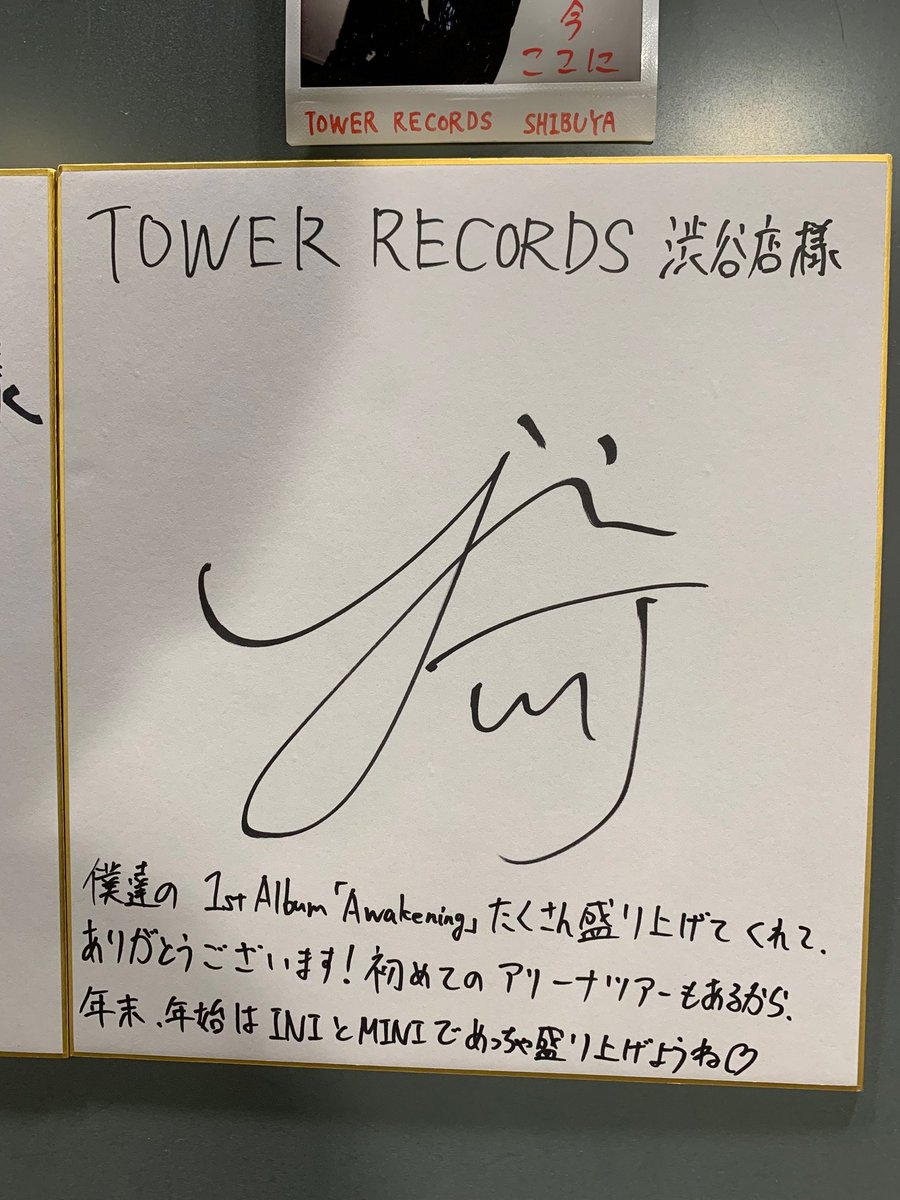 今
ここに
TOWER RECORDS SHIBUYA
TOWER RECORDS 渋谷店様
僕達の 1st Album「Awakening」たくさん盛り上げてくれて、
ありがとうございます!初めてのアリーナツアーもあるから、
年末、年始はINIとMINIでめっちゃ盛り上げようね♡